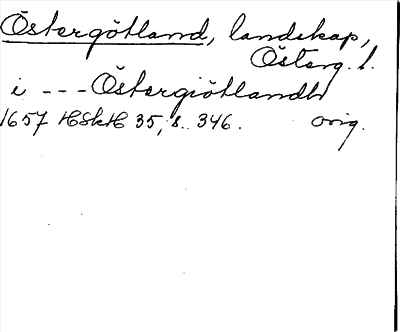 Östergötland, landskap,
Österg. l.
i --- Östergiötlandh
1657 HSkH 35, s. 346. orig.